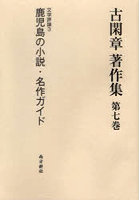 古閑章 著作集 第七巻
文学評論3
鹿児島の小説・名作ガイド
南方新社